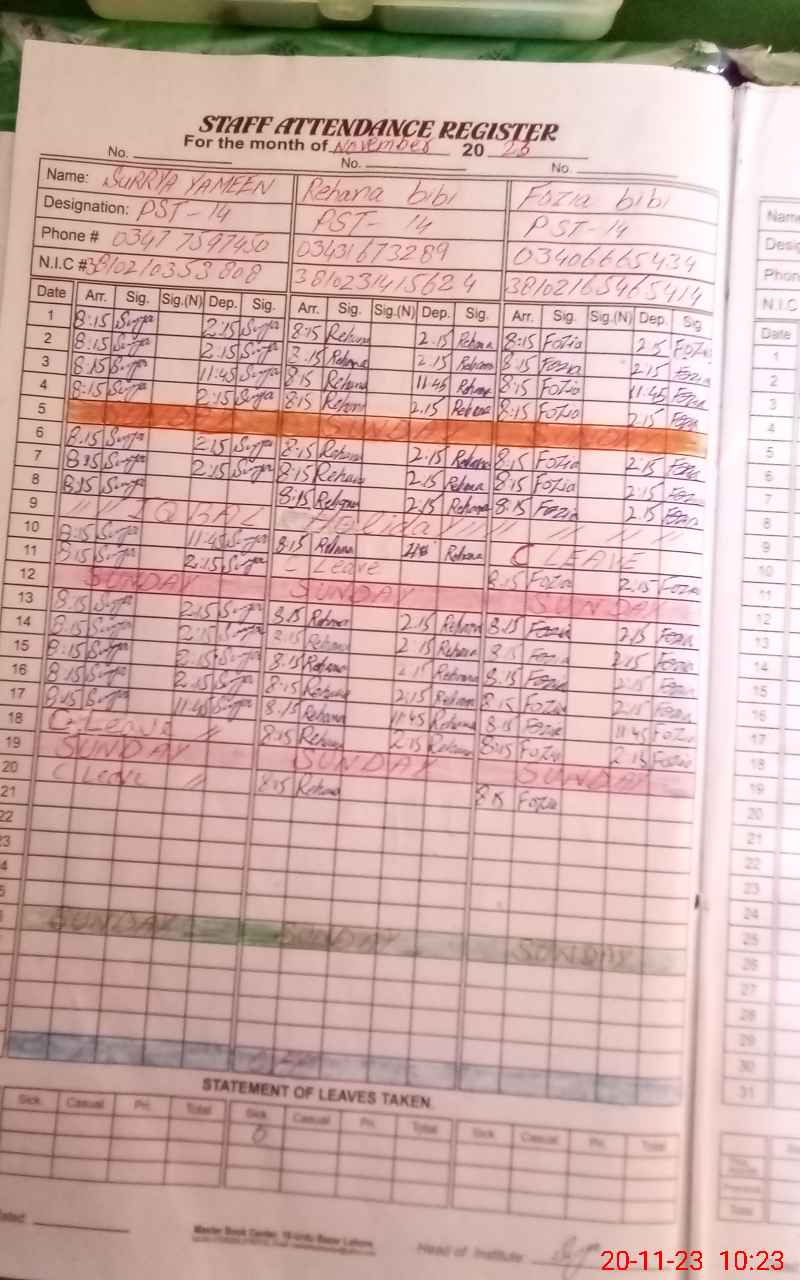 STAFF ATTENDANCE REGISTER
For the month of November 20 23
No. No. No.
Name: SURRYA YAMEEN Rehana bibi Fozia bibi
Designation: PST-14 PST-14 PST-14
Phone # 0347 7597450 03431673289 03406665434
N.I.C # 3810210353808 3810231415624 3810216546541 4
Date Arr. Sig. Sig.(N) Dep. Sig. Arr. Sig. Sig.(N) Dep. Sig. Arr. Sig. Sig.(N) Dep. Sig
1 8:15 Surya 2:15 Surya 8:15 Rehana 2.15 Rehana 8:15 Fozia 2.15 Fozia
2 8:15 Surya 2:15 Surya 8.15 Rehana 2.15 Rehana 8:15 Fozia 2.15 Fozia
3 8:15 Surya 11:45 Surya 8:15 Rehana 11:45 Rehana 8:15 Fozia 11:45 Fozia
4 8:15 Surya 2:15 Surya 8:15 Rehana 2.15 Rehana 8:15 Fozia 2.15 Fozia
5 SUNDAY SUNDAY
6 8.15 Surya 2:15 Surya 8:15 Rehana 2:15 Rehana 8:15 Fozia 2:15 Fozia
7 8:15 Surya 2:15 Surya 8:15 Rehana 2:15 Rehana 8:15 Fozia 2:15 Fozia
8 8:15 Surya 8:15 Rehana 2.15 Rehana 8:15 Fozia 2:15 Fozia
9 IQBAL Holiday
10 8:15 Surya 11:45 Surya 8:15 Rehana Rehana C LEAVE
11 8:15 Surya 2:15 Surya Leave 8:15 Fozia 2:15 Fozia
12 SUNDAY SUNDAY SUNDAY
13 8:15 Surya 2:15 Surya 8:15 Rehana 2:15 Rehana 8:15 Fozia 2:15 Fozia
14 8:15 Surya 2:15 Surya 8:15 Rehana 2:15 Rehana 8:15 Fozia 2:15 Fozia
15 8:15 Surya 2:15 Surya 8:15 Rehana 2:15 Rehana 8:15 Fozia 2:15 Fozia
16 8:15 Surya 2:15 Surya 8:15 Rehana 2:15 Rehana 8:15 Fozia 2:15 Fozia
17 8:15 Surya 11:45 Surya 8:15 Rehana 11:45 Rehana 8:15 Fozia 11:45 Fozia
18 C-Leave 8:15 Rehana 2:15 Rehana 8:15 Fozia 2:15 Fozia
19 SUNDAY SUNDAY SUNDAY
20 C Leave 8:15 Rehana 8:15 Fozia
21
22
23
SUNDAY SUNDAY SUNDAY
STATEMENT OF LEAVES TAKEN
Sick Casual Pri. Total Sick Casual Pri. Total Sick Casual Pri. Total
0
Master Book Center, 10-Urdu Bazar Lahore.
Head of Institute:
Name
Phon
N.I.C
Date
1
2
3
4
5
6
7
8
9
10
11
12
13
14
15
16
17
18
19
20
21
22
23
24
25
26
27
28
29
30
31
Total
20-11-23 10:23